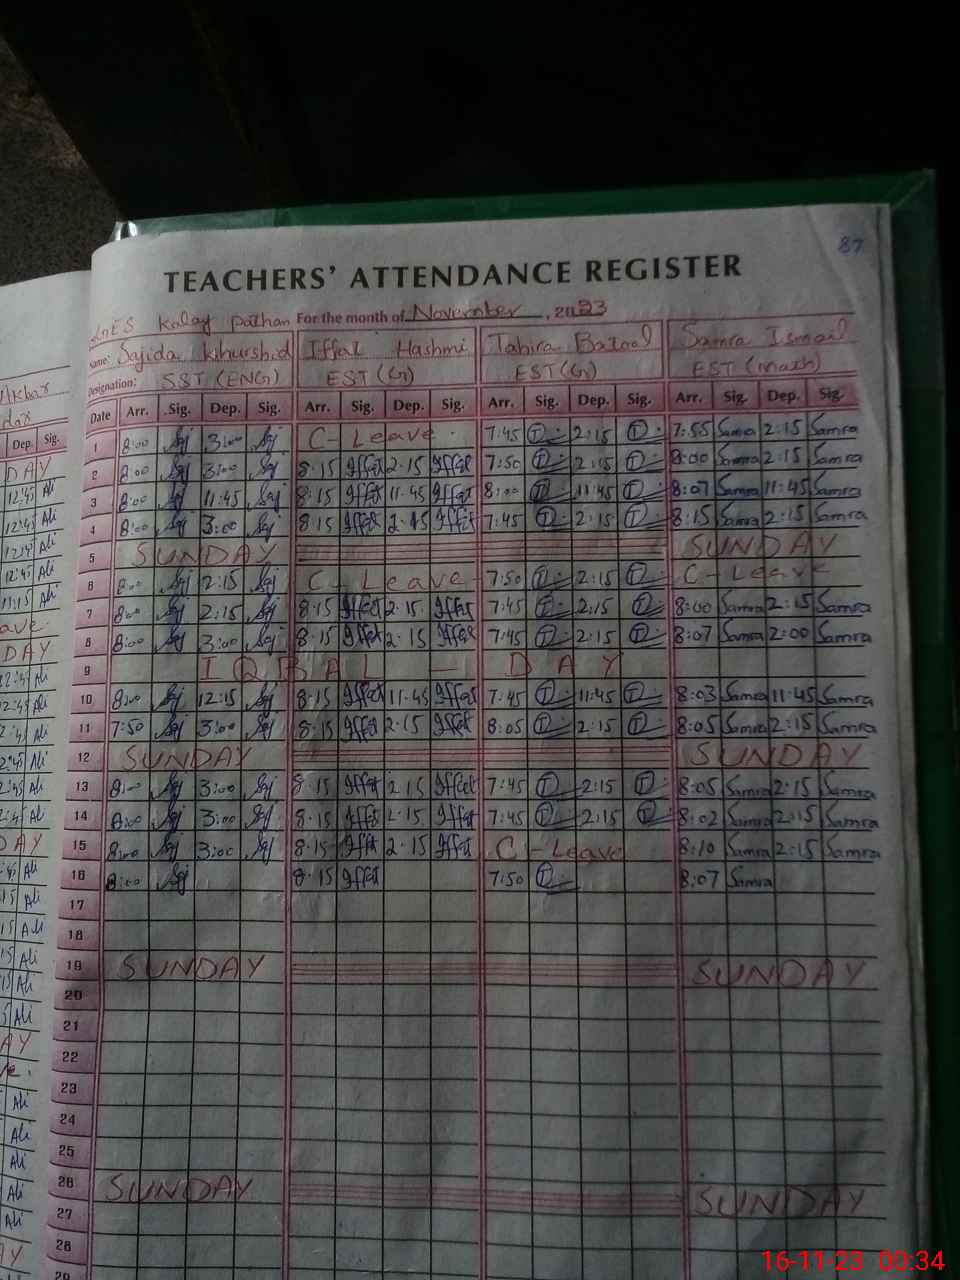 87
TEACHERS' ATTENDANCE REGISTER
GGES Kalay Pathan For the month of November, 2023
Name: Sajida Khurshid Iffat Hashmi Tahira Batool Samra Ismail
Designation: SST (ENG) EST (G) EST(G) EST (math)
Date Arr. Sig. Dep. Sig. Arr. Sig. Dep. Sig. Arr. Sig. Dep. Sig. Arr. Sig. Dep. Sig.
1 8:00 Saj 3:00 Saj C-Leave 7:45 T 2:15 T 7:55 Samra 2:15 Samra
2 8:00 Saj 3:00 Saj 8:15 Iffat 2:15 Iffat 7:50 T 2:15 T 8:00 Samra 2:15 Samra
3 8:00 Saj 11:45 Saj 8:15 Iffat 11:45 Iffat 8:00 T 11:45 T 8:07 Samra 11:45 Samra
4 8:00 Saj 3:00 Saj 8:15 Iffat 2:15 Iffat 7:45 T 2:15 T 8:15 Samra 2:15 Samra
5 SUNDAY SUNDAY
6 8:00 Saj 2:15 Saj C-Leave 7:50 T 2:15 T C-Leave
7 8:00 Saj 2:15 Saj 8:15 Iffat 2:15 Iffat 7:45 T 2:15 T 8:00 Samra 2:15 Samra
8 8:00 Saj 3:00 Saj 8:15 Iffat 2:15 Iffat 7:45 T 2:15 T 8:07 Samra 2:00 Samra
9 IQBAL - DAY
10 8:00 Saj 12:15 Saj 8:15 Iffat 11:45 Iffat 7:45 T 11:45 T 8:03 Samra 11:45 Samra
11 7:50 Saj 3:00 Saj 8:15 Iffat 2:15 Iffat 8:05 T 2:15 T 8:05 Samra 2:15 Samra
12 SUNDAY SUNDAY
13 8:00 Saj 3:00 Saj 8:15 Iffat 2:15 Iffat 7:45 T 2:15 T 8:05 Samra 2:15 Samra
14 8:00 Saj 3:00 Saj 8:15 Iffat 2:15 Iffat 7:45 T 2:15 T 8:02 Samra 2:15 Samra
15 8:00 Saj 3:00 Saj 8:15 Iffat 2:15 Iffat C-Leave 8:10 Samra 2:15 Samra
16 8:00 Saj 8:15 Iffat 7:50 T 8:07 Samra
17
18
19 SUNDAY SUNDAY
20
21
22
23
24
25
26 SUNDAY SUNDAY
27
28
29
16-11-23 00:34